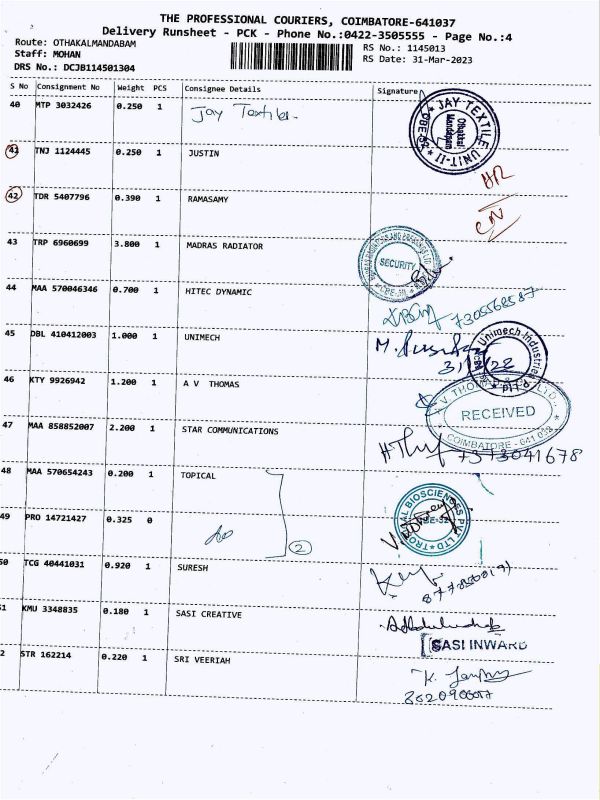 THE PROFESSIONAL COURIERS, COIMBATORE-641037
Delivery Runsheet - PCK - Phone No.:0422-3505555 - Page No.:4
Route: OTHAKALMANDABAM
RS No.: 1145013
Staff: MOHAN
RS Date: 31-Mar-2023
DRS No.: DCJB114501304
S No Consignment No Weight PCS Consignee Details Signature
40 MTP 3032426 0.250 1 Jay Textiles-
JAY TEXTILE UNIT-II
Othakkal
Mandapam
41 TNJ 1124445 0.250 1 JUSTIN
42 TDR 5407796 0.390 1 RAMASAMY
43 TRP 6960699 3.800 1 MADRAS RADIATOR
SECURITY
44 MAA 570046346 0.700 1 HITEC DYNAMIC
7305568587
45 DBL 410412003 1.000 1 UNIMECH
Unimech Industries
46 KTY 9926942 1.200 1 A V THOMAS
RECEIVED
COIMBATORE - 641
47 MAA 858852007 2.200 1 STAR COMMUNICATIONS
7373041678
48 MAA 570654243 0.200 1 TOPICAL
TROPICAL BIOSCIENCES PVT LTD
49 PRO 14721427 0.325 0
2
50 TCG 40441031 0.920 1 SURESH
51 KMU 3348835 0.180 1 SASI CREATIVE
SASI INWARD
2 STR 162214 0.220 1 SRI VEERIAH